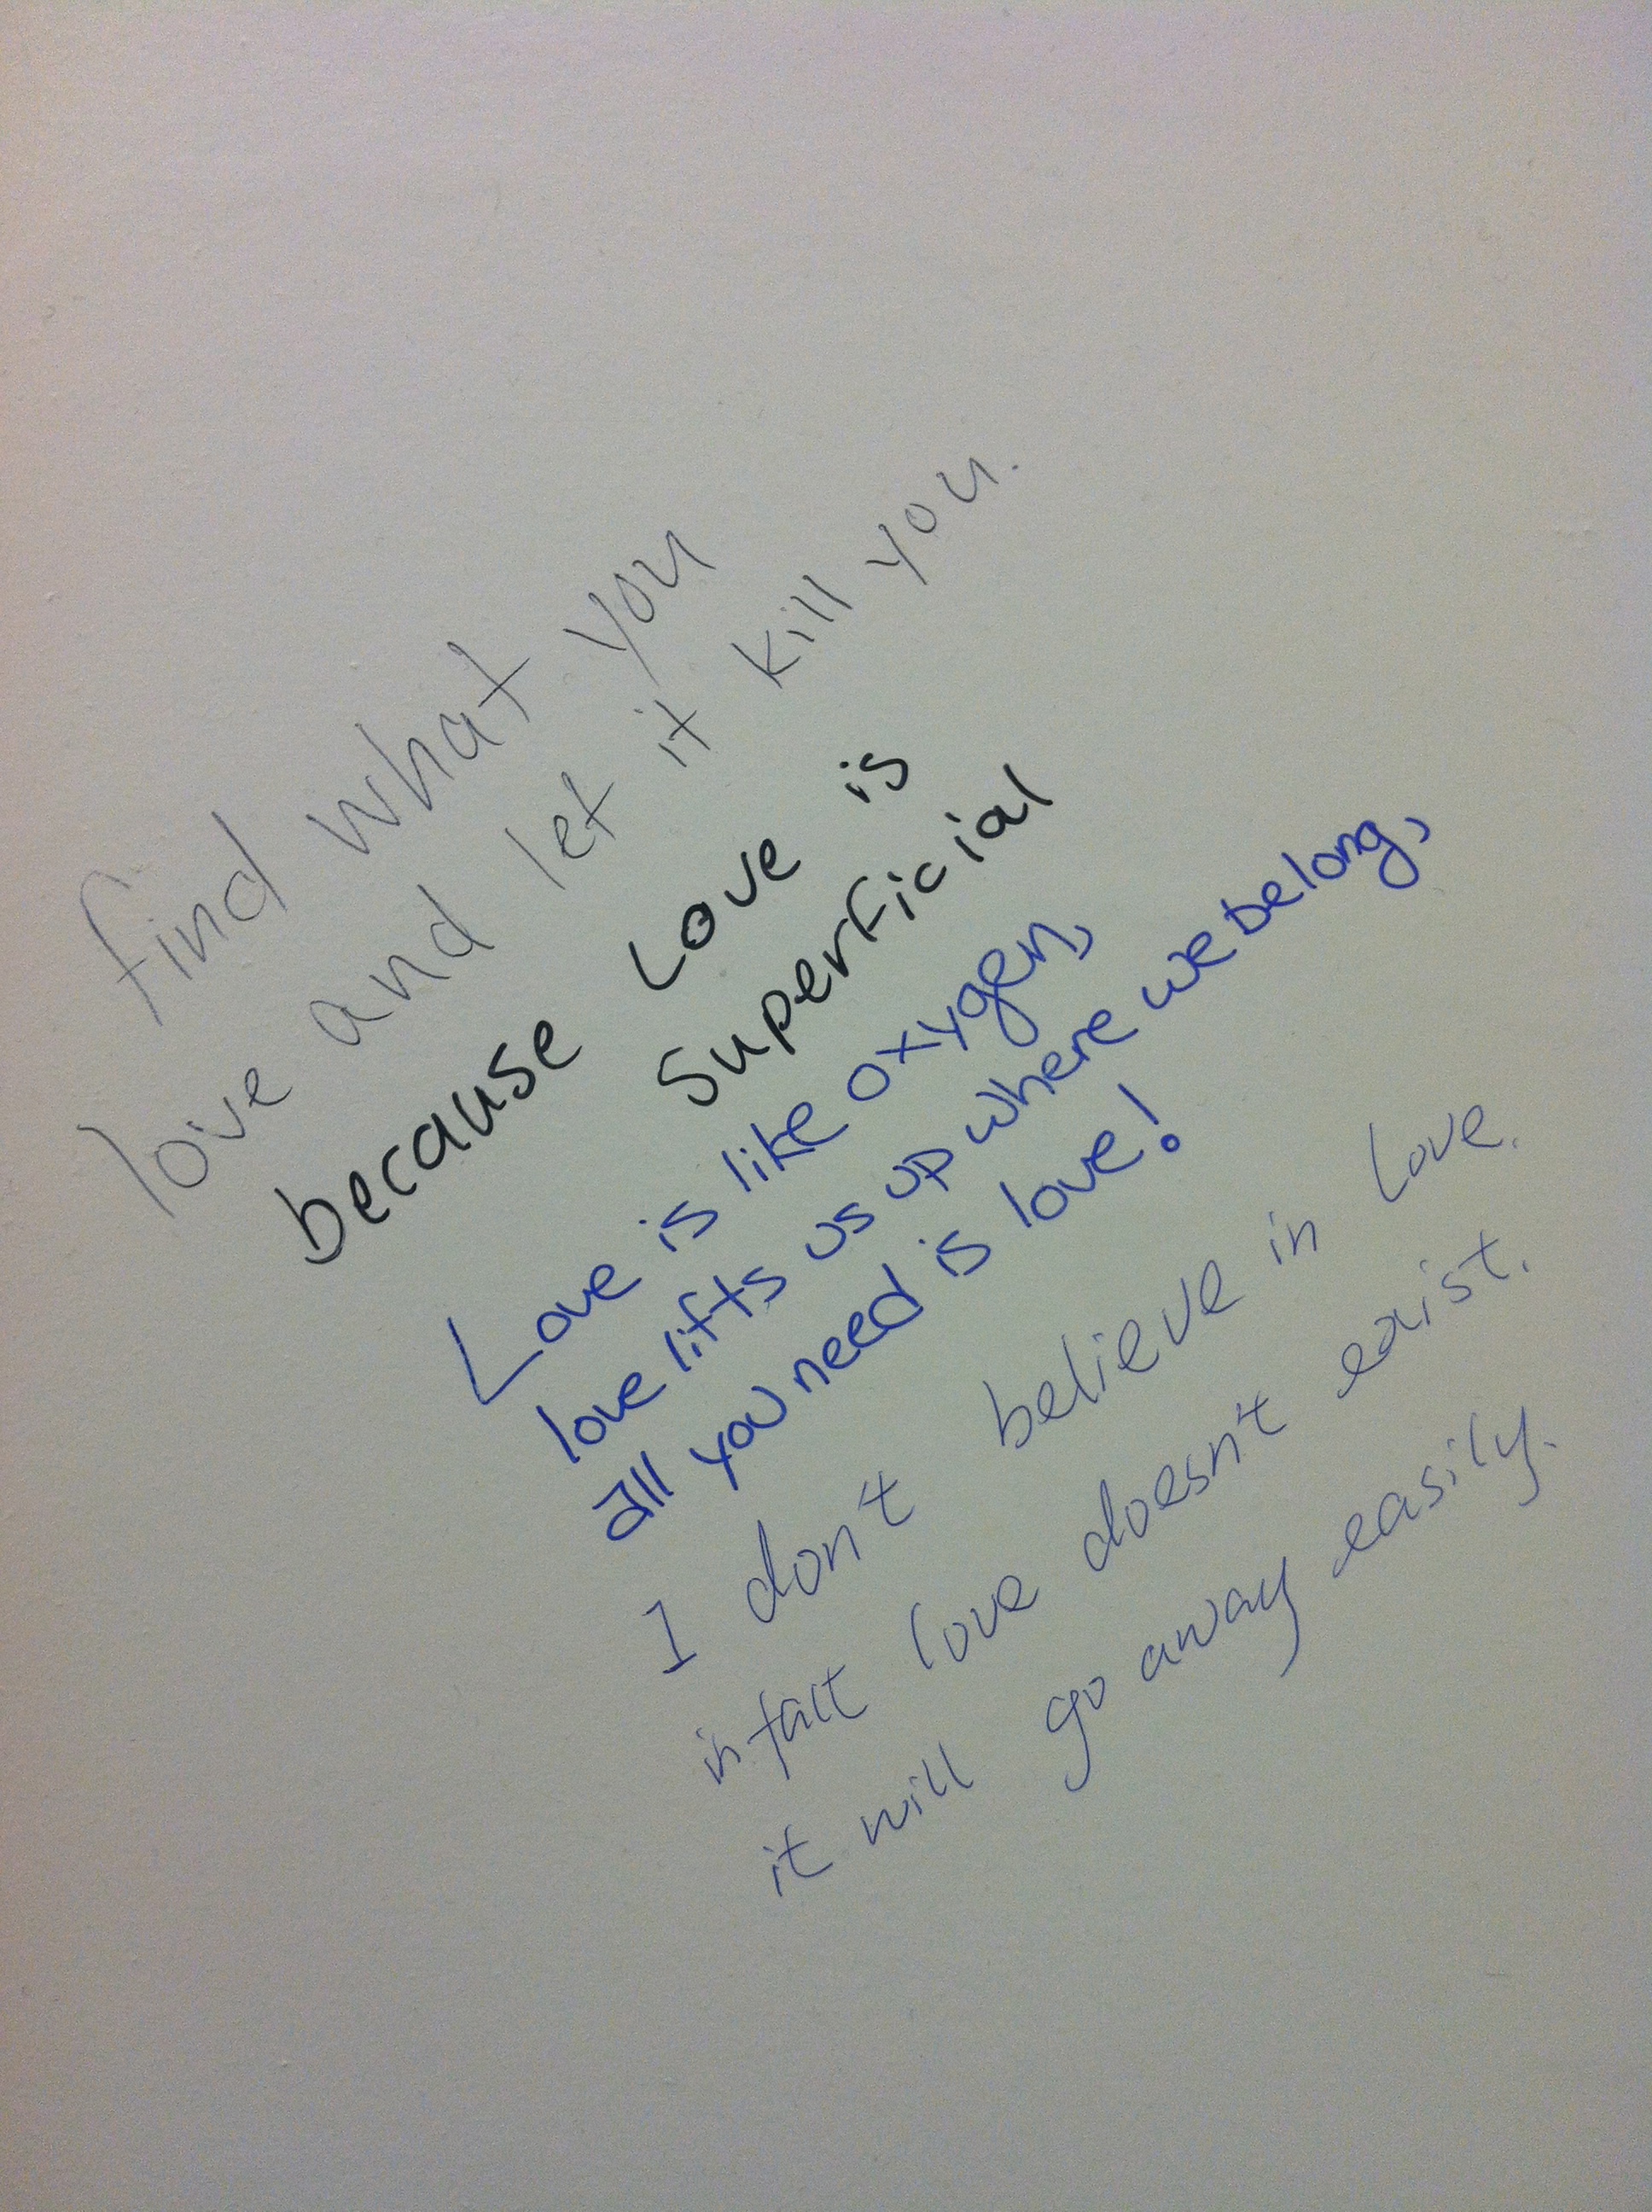 find what you
love and let it kill you.
because Love is
superficial
Love is like oxygen,
love lifts us up where we belong,
all you need is love!
I don't believe in love.
in fact love doesn't exist.
it will go away easily.